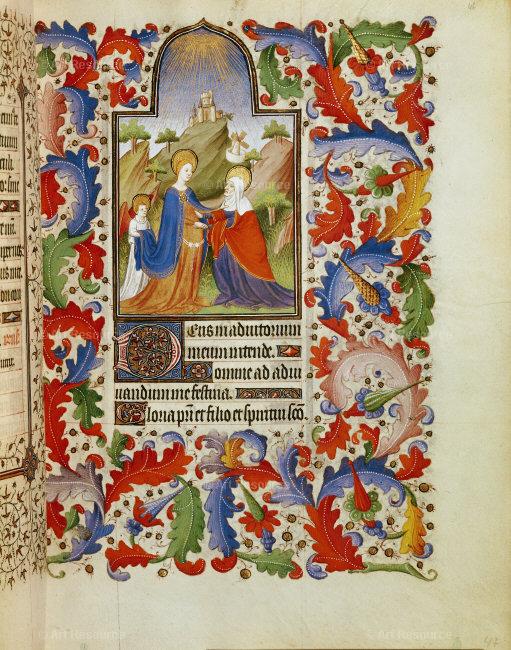 Deus in adiutorium
meum intende.
Domine ad adiu
uandum me festina.
Gloria pri et filio et spiritui sco
47
© Art Resource
© Art Resource